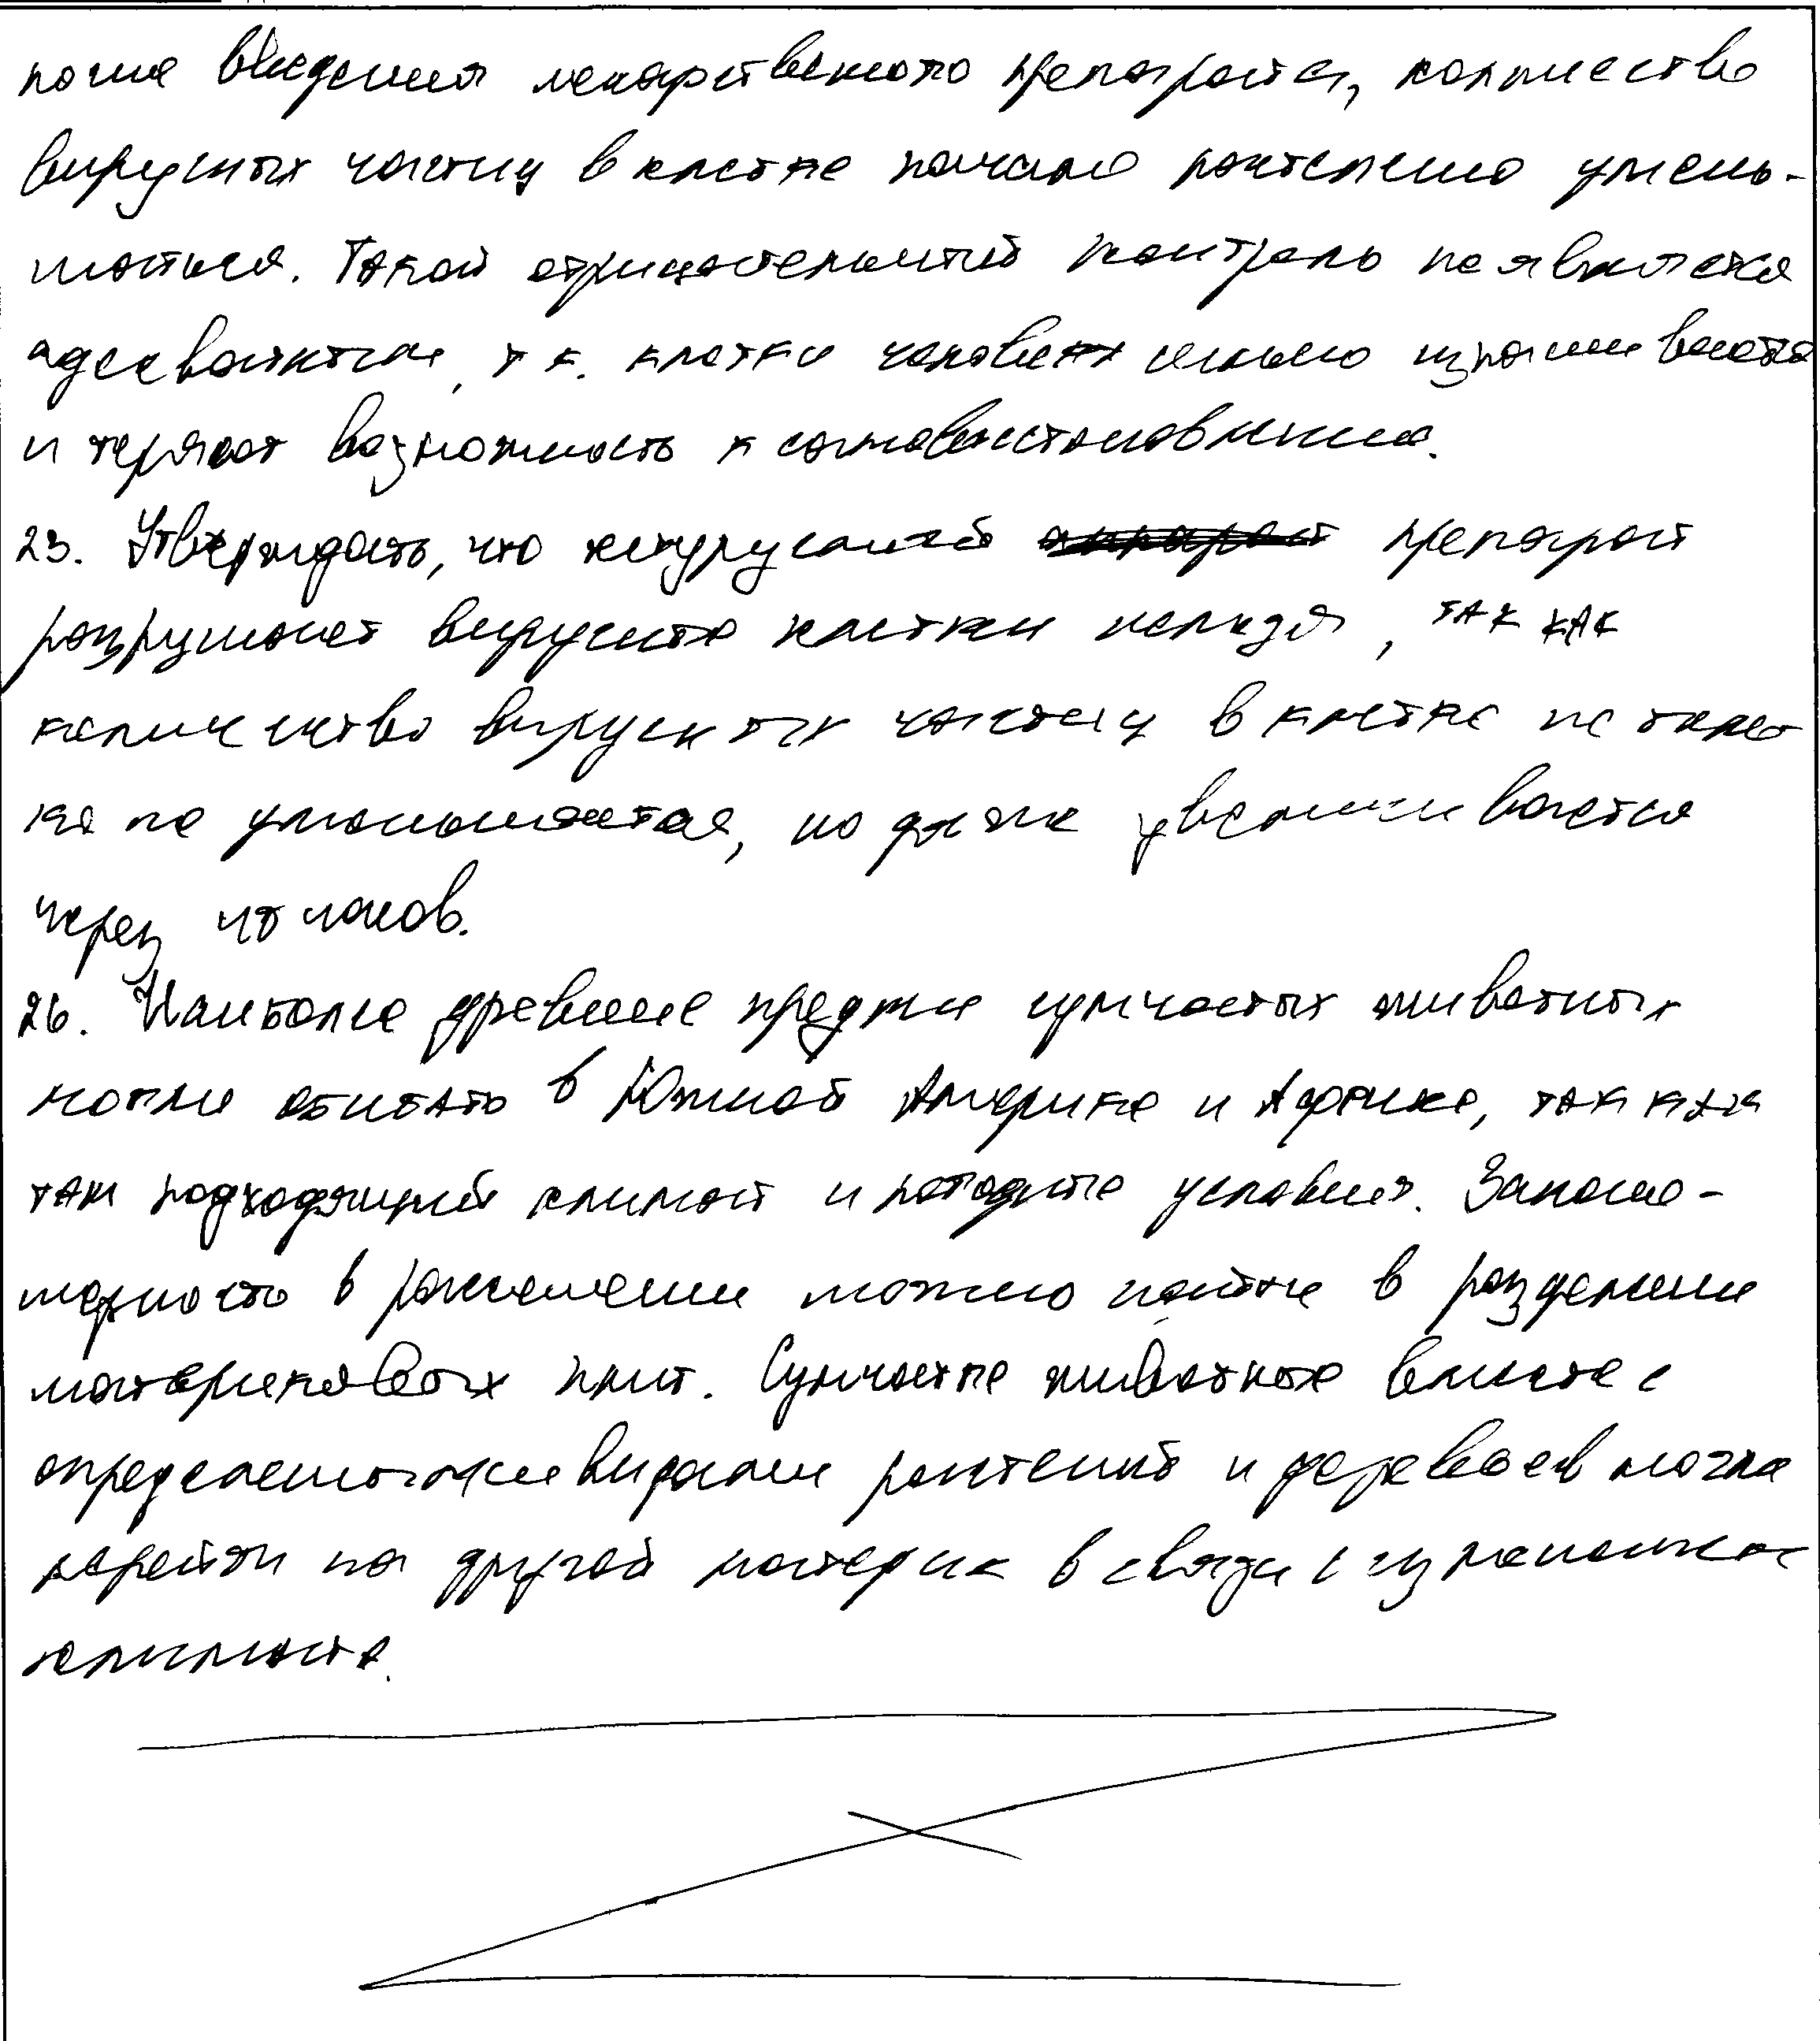 после введения лекарственного препарата, количество
вирусных частиц в клетке начало постепенно умень-
шаться. Такой отрицательный контроль не является
адекватным, т.к. клетки человека сильно изнашиваются
и теряют возможность к самовосстановлению.
23. Утверждать, что препарат
разрушает вирусные клетки нельзя, так как
количество вирусных частиц в клетке не толь
ко не уменьшается, но даже увеличивается
через 48 часов.
26. Наиболее древние предки сумчатых животных
могли обитать в Южной Америке и Африке, так как
там подходящий климат и погодные условия. Законо-
мерность в расселении можно найти в разделении
материковых плит. Сумчатые животные вместе с
определенными видами растений и деревьев могли
перейти на другой материк в связи с изменением
климата.